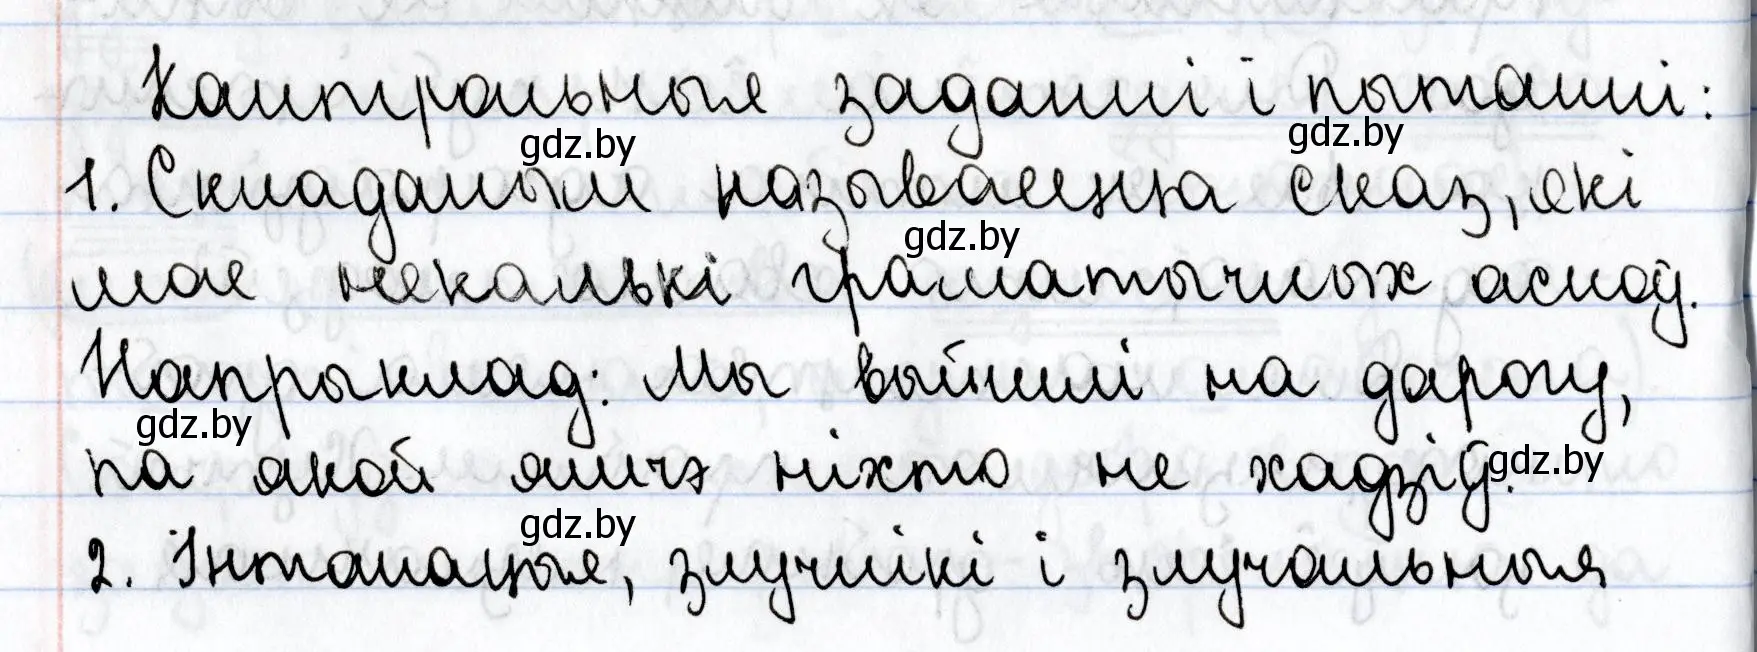 Кантрольныя заданні і пытанні:
1. Складаным называецца сказ, які
мае некалькі граматычных асноў.
Напрыклад: Мы выйшлі на дарогу,
па якой яшчэ ніхто не хадзіў.
2. Інтанацыя, злучнікі і злучальныя
gdz.by
gdz.by
gdz.by
gdz.by
gdz.by
gdz.by